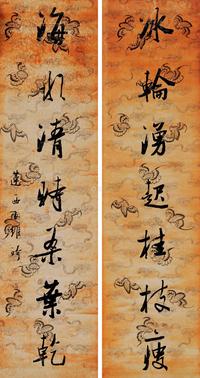 冰輪湧起桂枝瘦
海水清時桑葉乾